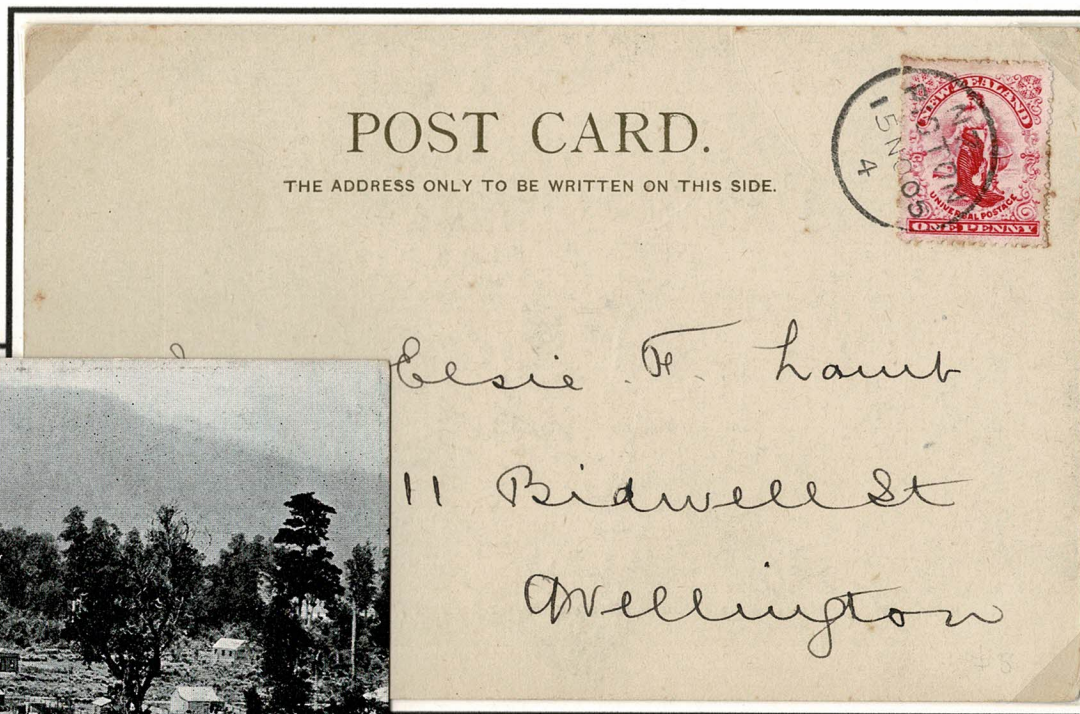 POST CARD.
THE ADDRESS ONLY TO BE WRITTEN ON THIS SIDE.
NEW ZEALAND
UNIVERSAL POSTAGE
ONE PENNY
15 NO 05
4
Elsie F. Lamb
11 Bidwell St
Wellington